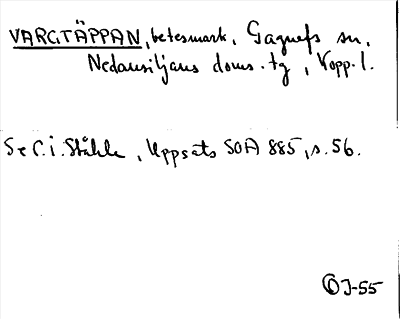 VARGTÄPPAN, betesmark, Gagnefs sn,
Nedansiljans doms. tg, Kopp. l.
Se C.i. Ståhle, Uppsats SOA 885, s. 56.
J-55